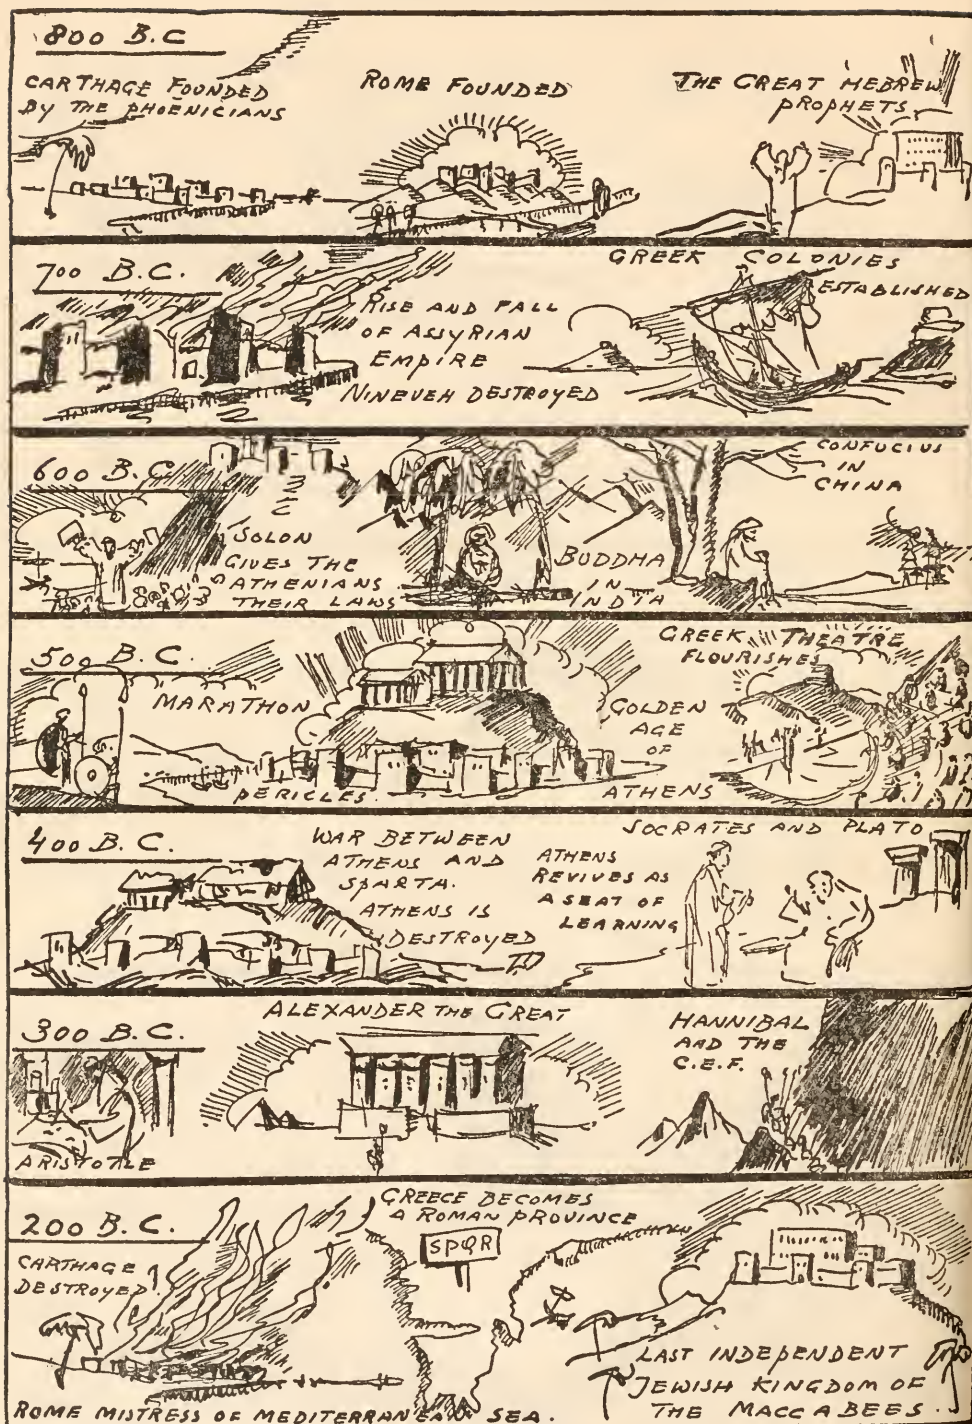 800 B.C
CARTHAGE FOUNDED
BY THE PHOENICIANS
ROME FOUNDED
THE GREAT HEBREW
PROPHETS
700 B.C.
RISE AND FALL
OF ASSYRIAN
EMPIRE
NINEVEH DESTROYED
GREEK COLONIES
ESTABLISHED
600 B.C.
SOLON
GIVES THE
ATHENIANS
THEIR LAWS
BUDDHA
IN
INDIA
CONFUCIUS
IN
CHINA
500 B.C.
MARATHON
PERICLES.
GOLDEN
AGE
OF
ATHENS
GREEK THEATRE
FLOURISHES
400 B.C.
WAR BETWEEN
ATHENS AND
SPARTA.
ATHENS IS
DESTROYED
ATHENS
REVIVES AS
A SEAT OF
LEARNING
SOCRATES AND PLATO
300 B.C.
ARISTOTLE
ALEXANDER THE GREAT
HANNIBAL
AND THE
C.E.F.
200 B.C.
CARTHAGE
DESTROYED!
GREECE BECOMES
A ROMAN PROVINCE
SPQR
LAST INDEPENDENT
JEWISH KINGDOM OF
THE MACCABEES.
ROME MISTRESS OF MEDITERRANEAN SEA.